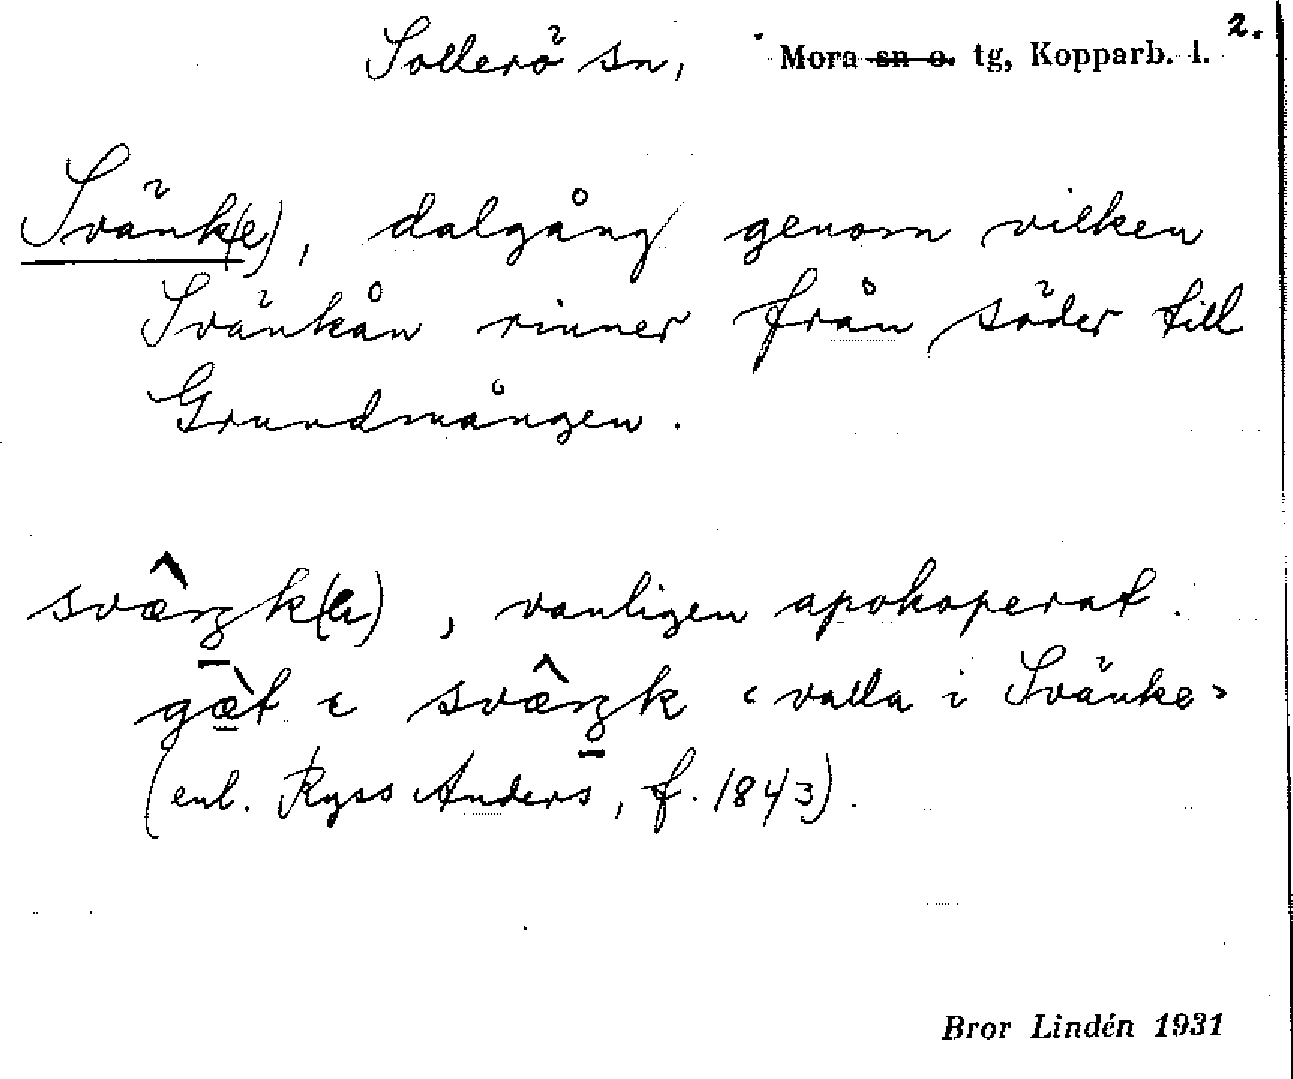 2.
Sollerö sn, Mora sn o. tg, Kopparb. l.
Svänk(e), dalgång genom vilken
Svänkån rinner från söder till
Grundmången.
, vanligen apokoperat.
‹valla i Svänke›
(enl. Ryss Anders, f. 1843).
Bror Lindén 1931